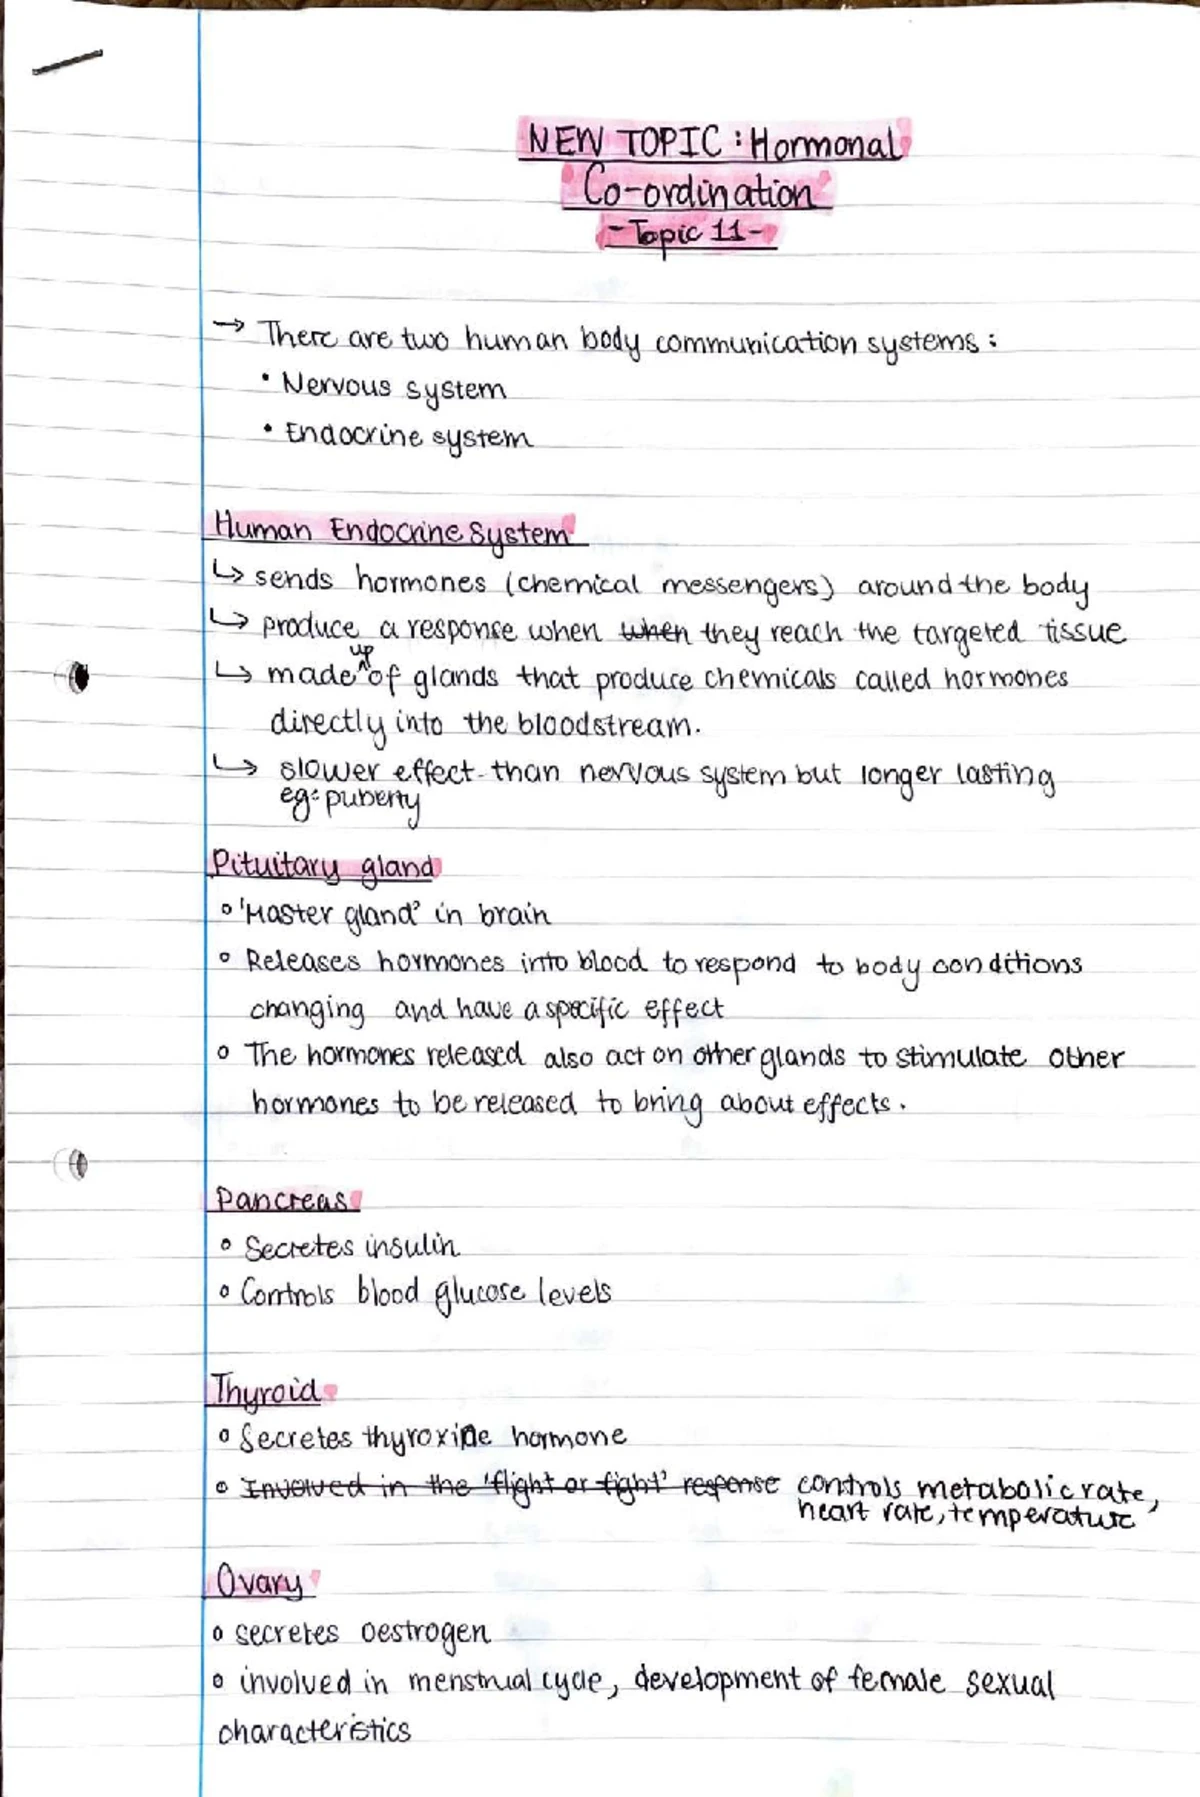 NEW TOPIC : Hormonal
Co-ordination
- Topic 11 -
→ There are two human body communication systems :
• Nervous system
• Endocrine system
Human Endocrine System
↳ sends hormones (chemical messengers) around the body
↳ produce a response when ~~when~~ they reach the targeted tissue
↳ made up of glands that produce chemicals called hormones
directly into the bloodstream.
↳ slower effect than nervous system but longer lasting
eg: puberty
Pituitary gland
o 'Master gland' in brain
o Releases hormones into blood to respond to body conditions
changing and have a specific effect
o The hormones released also act on other glands to stimulate other
hormones to be released to bring about effects.
Pancreas
o Secretes insulin
o Controls blood glucose levels
Thyroid
o Secretes thyroxine hormone
o ~~Involved in the 'flight or fight' response~~ controls metabolic rate,
heart rate, temperature
Ovary
o secretes oestrogen
o involved in menstrual cycle, development of female sexual
characteristics